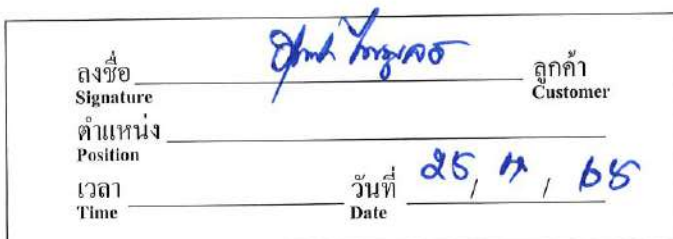 ลงชื่อ ลูกค้า
Signature Customer
ตำแหน่ง
Position
เวลา วันที่ 25 / / 65
Time Date